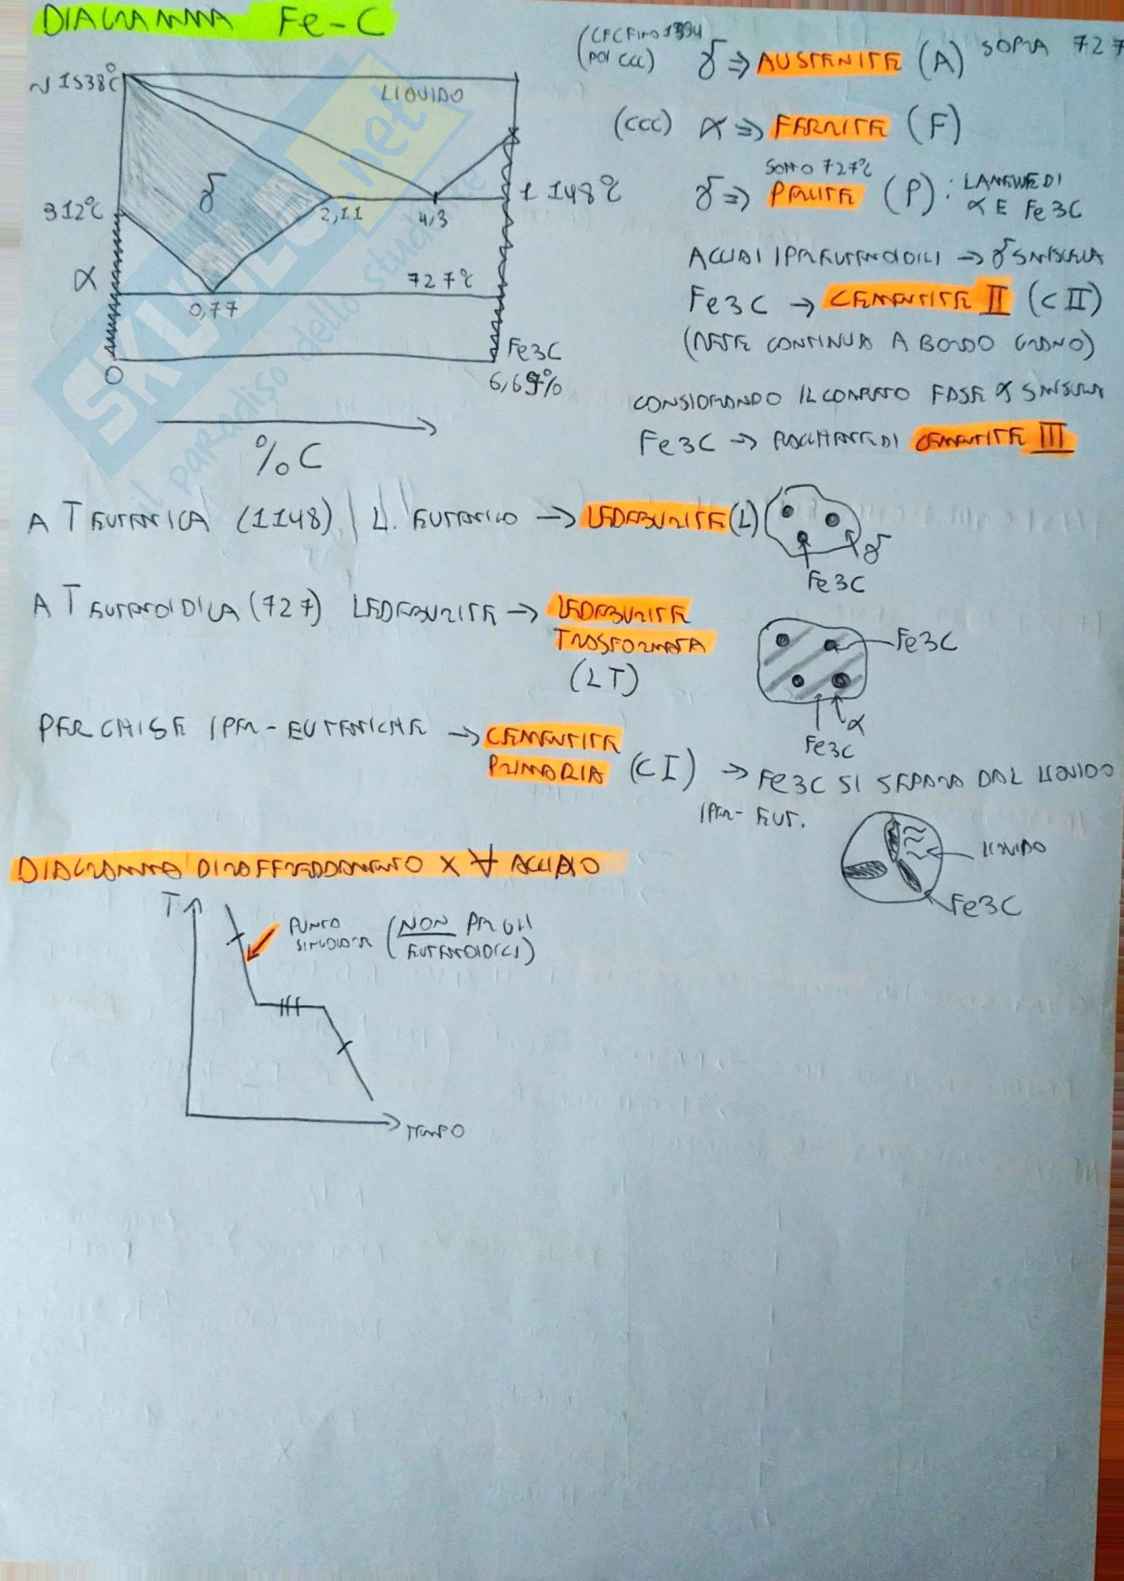 DIAGRAMMA Fe-C
~1538°C
LIQUIDO
γ
912°C
2,11
4,3
1148°C
α
727°C
0,77
Fe3C
0
6,67%
% C
(CFC FINO 1394 POI CCC) γ ⇒ AUSTENITE (A) SOPRA 727
(CCC) α ⇒ FERRITE (F)
SOTTO 727°C
γ ⇒ PERLITE (P): LAMELLE DI α E Fe3C
ACCIAI IPEREUTETTOIDICI → γ SMISCELA
Fe3C → CEMENTITE II (CII)
(RETE CONTINUA A BORDO GRANO)
CONSIDERANDO IL CAMPO FASE α SMISCELA
Fe3C → PLACCHETTE DI CEMENTITE III
A T EUTETTICA (1148) L. EUTETTICO → LEDEBURITE (L)
γ
Fe3C
A T EUTETTOIDICA (727) LEDEBURITE → LEDEBURITE
TRASFORMATA
(LT)
Fe3C
α
Fe3C
PER GHISE IPER-EUTETTICHE → CEMENTITE
PRIMARIA (CI) → Fe3C SI SEPARA DAL LIQUIDO
IPER-EUT.
LIQUIDO
Fe3C
DIAGRAMMA DI RAFFREDDAMENTO X ∀ ACCIAIO
T
PUNTO SINGOLARE (NON PER GLI EUTETTOIDICI)
TEMPO
SKUOLA.net
il paradiso dello studente